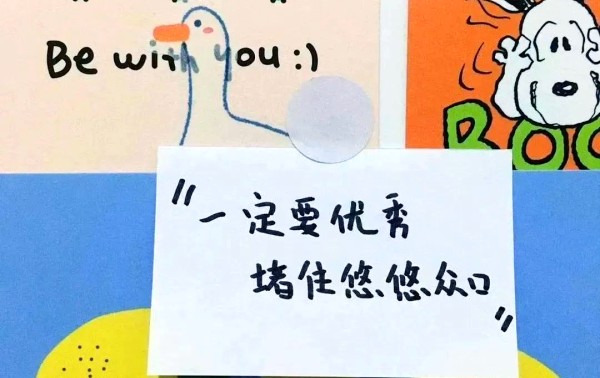 Be with you :)
BOO
"一定要优秀
堵住悠悠众口"